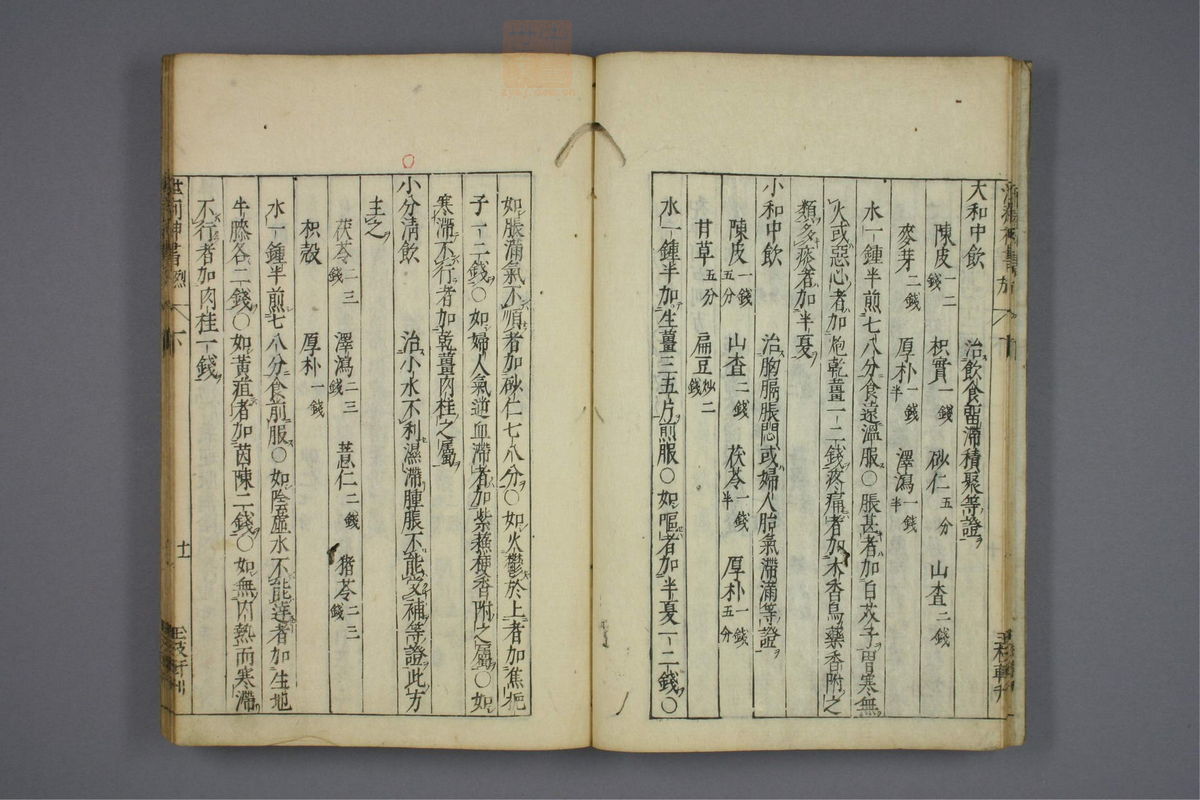 大和中飲　治飲食留滯積聚等證
陳皮一二錢　枳實一錢　砂仁五分　山査二錢
麥芽二錢　厚朴一錢半　澤瀉一錢半
水一鍾半煎七八分食遠溫服○脹甚者加白芥子胃寒無
火或惡心者加炮乾薑一二錢疼痛者加木香烏藥香附之
類多痰者加半夏
小和中飲　治胸膈脹悶或婦人胎氣滯滿等證
陳皮一錢五分　山査二錢　茯苓一錢半　厚朴一錢五分
甘草五分　扁豆炒二錢
水一鍾半加生薑三五片煎服○如嘔者加半夏一二錢○
如脹滿氣不順者加砂仁七八分○如火鬱於上者加焦梔
子一二錢○如婦人氣逆血滯者加紫蘓梗香附之屬○如
寒滯不行者加乾薑肉桂之屬
小分淸飲　治小水不利濕滯腫脹不能受補等證此方
主之
茯苓二三錢　澤瀉二三錢　薏仁二錢　猪苓二三錢
枳殻　厚朴一錢
水一鍾半煎七八分食前服○如陰虛水不能達者加生地
牛膝各二錢○如黃疸者加茵陳二錢○如無內熱而寒滯
不行者加肉桂一錢
十一